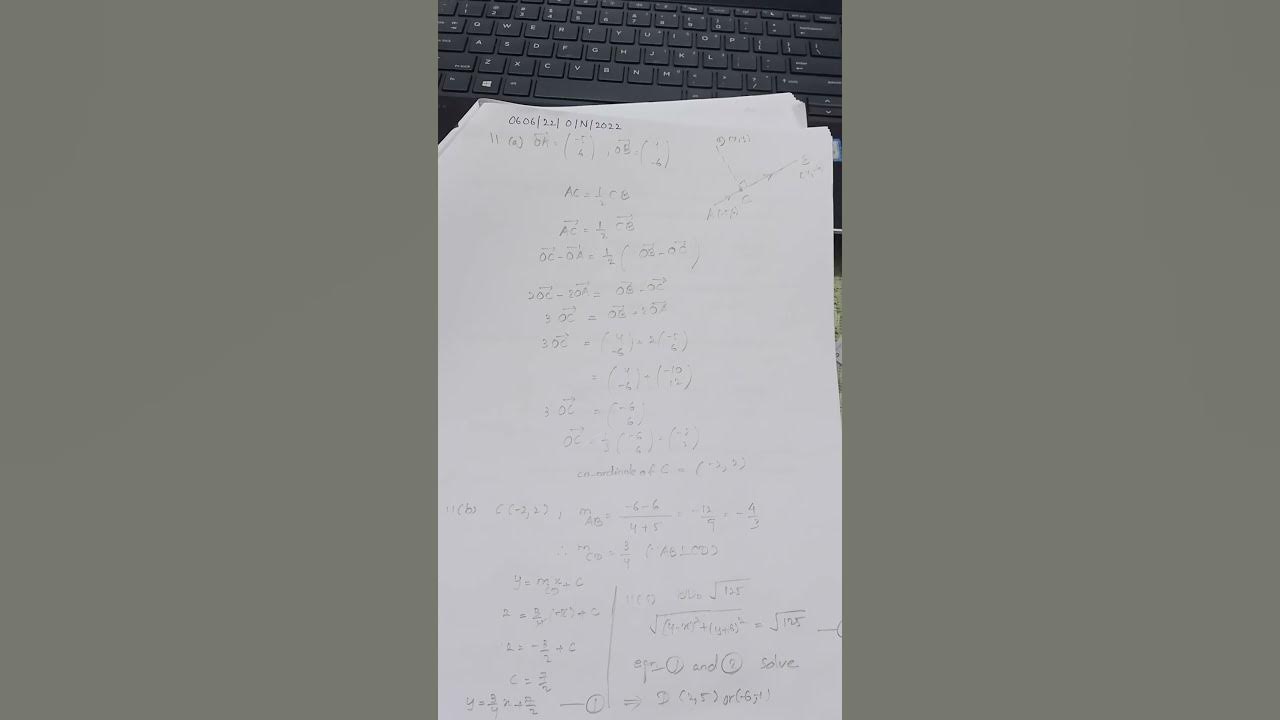 0606/22/O/N/2022
11 (a) OA = (-5 6), OB = (4 -6)
AC = 1/2 CB
AC = 1/2 CB
OC - OA = 1/2 (OB - OC)
2OC - 2OA = OB - OC
3 OC = OB + 2OA
3 OC = (4 -6) + 2(-5 6)
= (4 -6) + (-10 12)
3 OC = (-6 6)
OC = 1/3 (-6 6) = (-2 2)
co-ordinate of C = (-2, 2)
11(b) C(-2,2), m AB = -6-6 / 4+5 = -12/9 = -4/3
∴ m CD = 3/4 (∵ AB ⊥ CD)
y = mx + c
2 = 3/4 (-2) + c
2 = -3/2 + c
c = 7/2
y = 3/4 x + 7/2 — ①
11(c) √125
√(4-x)²+(y+6)² = √125
eqn ① and ② solve
⇒ D (2,5) or (-6,-1)